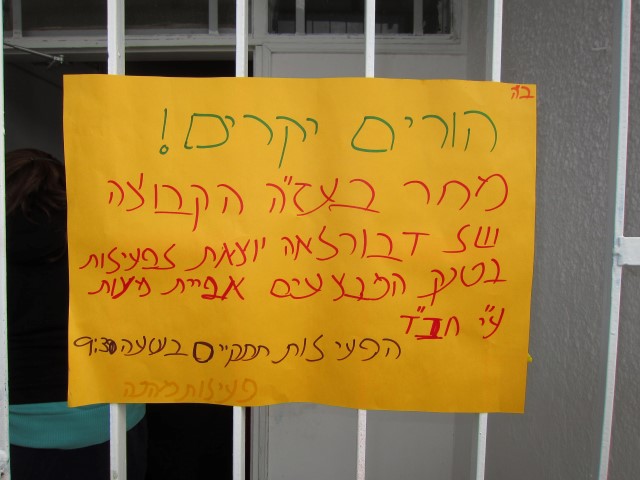 בה
הורים יקרים!
מחר בעז"ה הקבוצה
של דבורלאה יוצאת לפעילות
בטנק המבצעים אפיית מצות
ע"י חב"ד
הפעילות תתקיים בשעה 9:30
פעילות מהנה